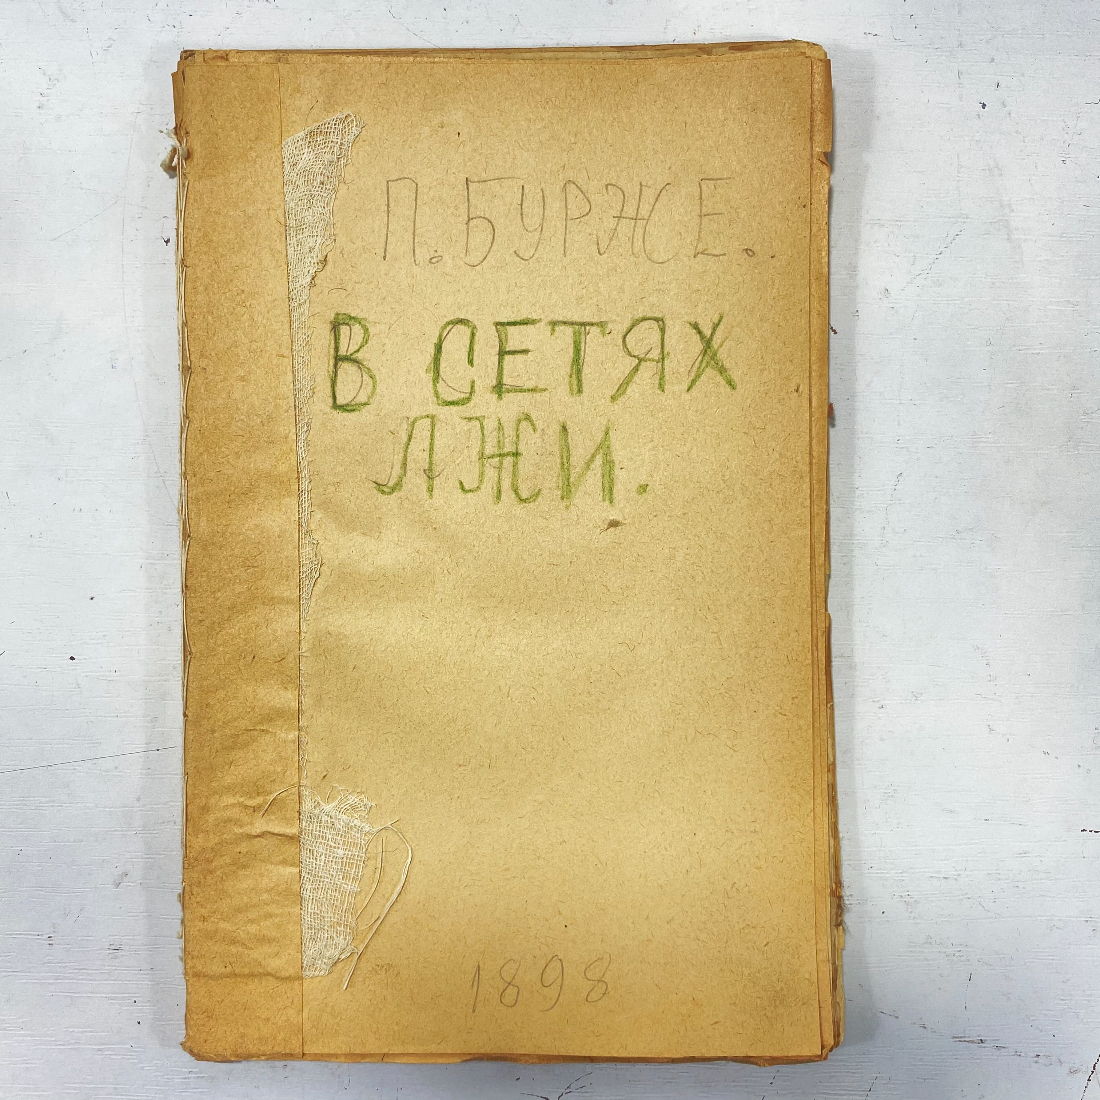 П. БУРЖЕ.
В СЕТЯХ
ЛЖИ.
1898